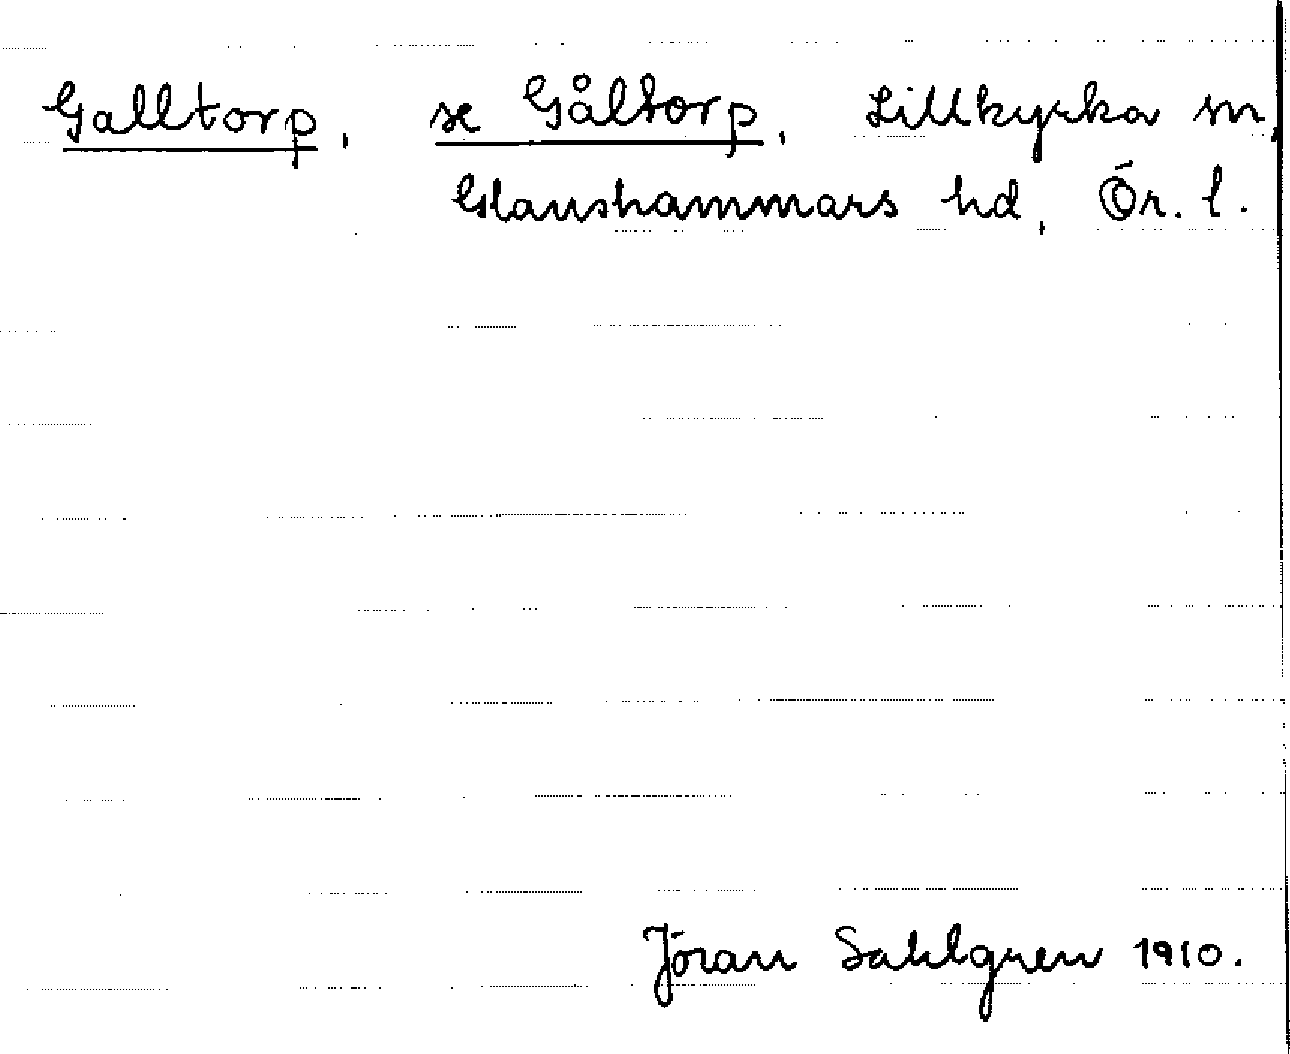 Galltorp, se Gåltorp, Lillkyrka sn,
Glanshammars hd, Ör. l.
Jöran Sahlgren 1910.